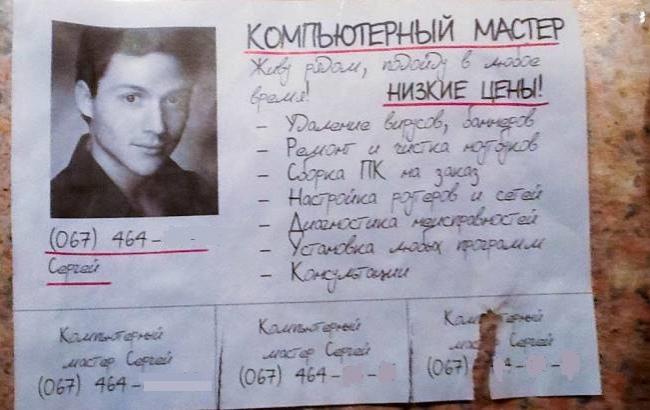 КОМПЬЮТЕРНЫЙ МАСТЕР
Живу рядом, подойду в любое
время!
НИЗКИЕ ЦЕНЫ!
- Удаление вирусов, баннеров
- Ремонт и чистка ноутбуков
- Сборка ПК на заказ
- Настройка роутеров и сетей
- Диагностика неисправностей
- Установка любых программ
- Консультации
(067) 464-
Сергей
Компьютерный
мастер Сергей
(067) 464-
Компьютерный
мастер Сергей
(067) 464-
Компьютерный
мастер Сергей
(067)